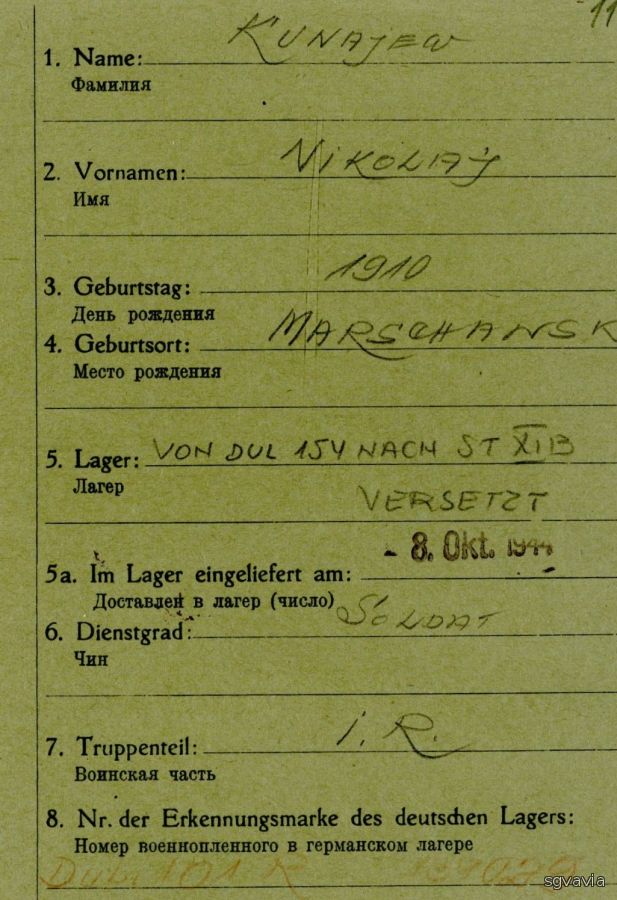 11
1. Name: KUNAJEW
Фамилия
2. Vornamen: NIKOLAJ
Имя
3. Geburtstag: 1910
День рождения
4. Geburtsort: MARSCHANSK
Место рождения
5. Lager: VON DUL 154 NACH ST XI B
Лагер
VERSETZT
- 8. Okt. 1944
5a. Im Lager eingeliefert am:
Доставлей в лагер (число)
6. Dienstgrad: SOLDAT
Чин
7. Truppenteil: I. R.
Воинская часть
8. Nr. der Erkennungsmarke des deutschen Lagers:
Номер военнопленного в германском лагере
sgvavia